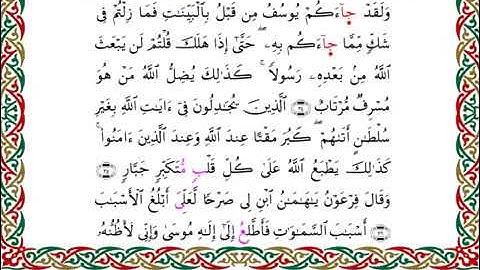 وَلَقَدْ جَآءَكُمْ يُوسُفُ مِن قَبْلُ بِٱلْبَيِّنَٰتِ فَمَا زِلْتُمْ فِى
شَكٍّ مِّمَّا جَآءَكُم بِهِۦ ۖ حَتَّىٰٓ إِذَا هَلَكَ قُلْتُمْ لَن يَبْعَثَ
ٱللَّهُ مِنۢ بَعْدِهِۦ رَسُولًا ۚ كَذَٰلِكَ يُضِلُّ ٱللَّهُ مَنْ هُوَ
مُسْرِفٌ مُّرْتَابٌ ٣٤ ٱلَّذِينَ يُجَٰدِلُونَ فِىٓ ءَايَٰتِ ٱللَّهِ بِغَيْرِ
سُلْطَٰنٍ أَتَىٰهُمْ ۖ كَبُرَ مَقْتًا عِندَ ٱللَّهِ وَعِندَ ٱلَّذِينَ ءَامَنُوا۟ ۚ
كَذَٰلِكَ يَطْبَعُ ٱللَّهُ عَلَىٰ كُلِّ قَلْبِ مُتَكَبِّرٍ جَبَّارٍ ٣٥
وَقَالَ فِرْعَوْنُ يَٰهَٰمَٰنُ ٱبْنِ لِى صَرْحًا لَّعَلِّىٓ أَبْلُغُ ٱلْأَسْبَٰبَ
٣٦ أَسْبَٰبَ ٱلسَّمَٰوَٰتِ فَأَطَّلِعَ إِلَىٰٓ إِلَٰهِ مُوسَىٰ وَإِنِّى لَأَظُنُّهُۥ